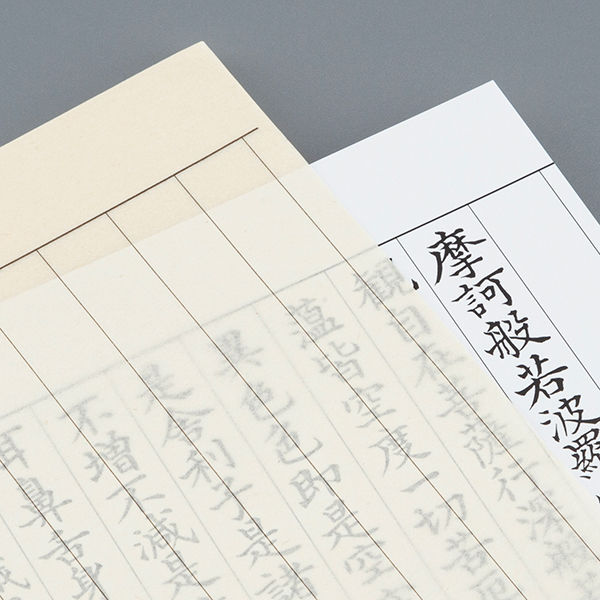 摩訶般若波羅
観自在菩薩行深般
薀皆空度一切苦
異色色即是空
是舎利子是諸
不増不減是
耳鼻舌身